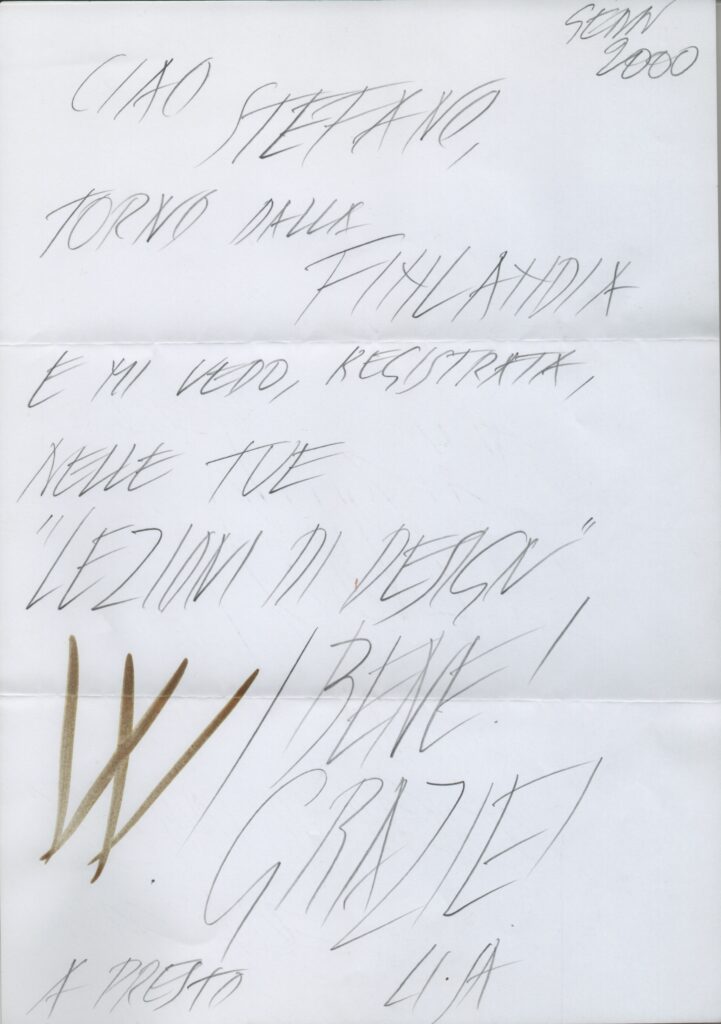 GENN
2000
CIAO
STEFANO,
TORNO DALLA
FINLANDIA
E MI VEDO, REGISTRATA,
NELLE TUE
"LEZIONI DI DESIGN"
W! BENE!
GRAZIE!
A PRESTO LI.SA